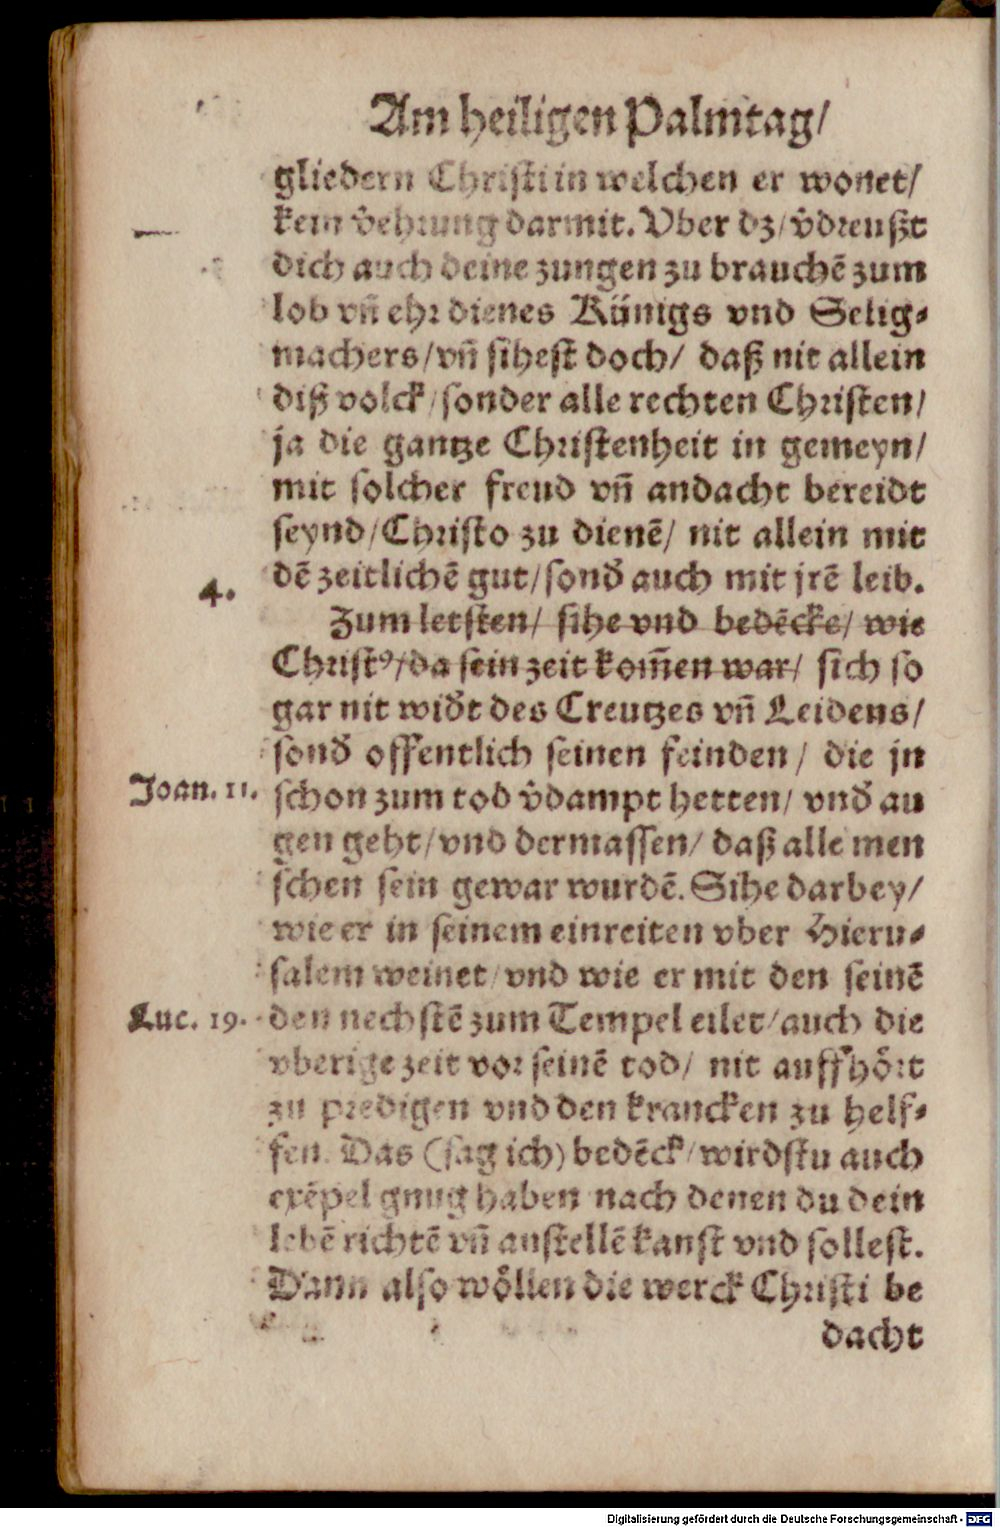 Am heiligen Palmtag/
gliedern Christi in welchen er wonet/
kein v̂ehrung darmit. Vber dz/ v̂dreußt
dich auch deine zungen zu brauchē zum
lob vn̄ ehr dienes Künigs vnd Selig⸗
machers/ vn̄ sihest doch/ daß nit allein
diß volck/ sonder alle rechten Christen/
ja die gantze Christenheit in gemeyn/
mit solcher freud vn̄ andacht bereidt
seynd/ Christo zu dienē/ nit allein mit
dē zeitlichē gut/ sond̂ auch mit jrē leib.
4.
Zum letsten/ sihe vnd bedēcke/ wie
Christꝰ/ da sein zeit kom̄en war/ sich so
gar nit wid̂t des Creutzes vn̄ Leidens/
sond̂ offentlich seinen feinden/ die jn
Joan. 11.
schon zum tod v̂dampt hetten/ vnd̂ au
gen geht/ vnd dermassen/ daß alle men
schen sein gewar wurdē. Sihe darbey/
wie er in seinem einreiten vber Hieru⸗
salem weinet/ vnd wie er mit den seinē
Luc. 19.
den nechstē zum Tempel eilet/ auch die
vberige zeit vor seinē tod/ nit auffhoͤrt
zu predigen vnd den krancken zu helf⸗
fen. Das (sag ich) bedēck/ wirdstu auch
exēpel gnug haben nach denen du dein
lebē richtē vn̄ anstellē kanst vnd sollest.
Dann also woͤllen die werck Christi be
dacht
Digitalisierung gefördert durch die Deutsche Forschungsgemeinschaft - DFG